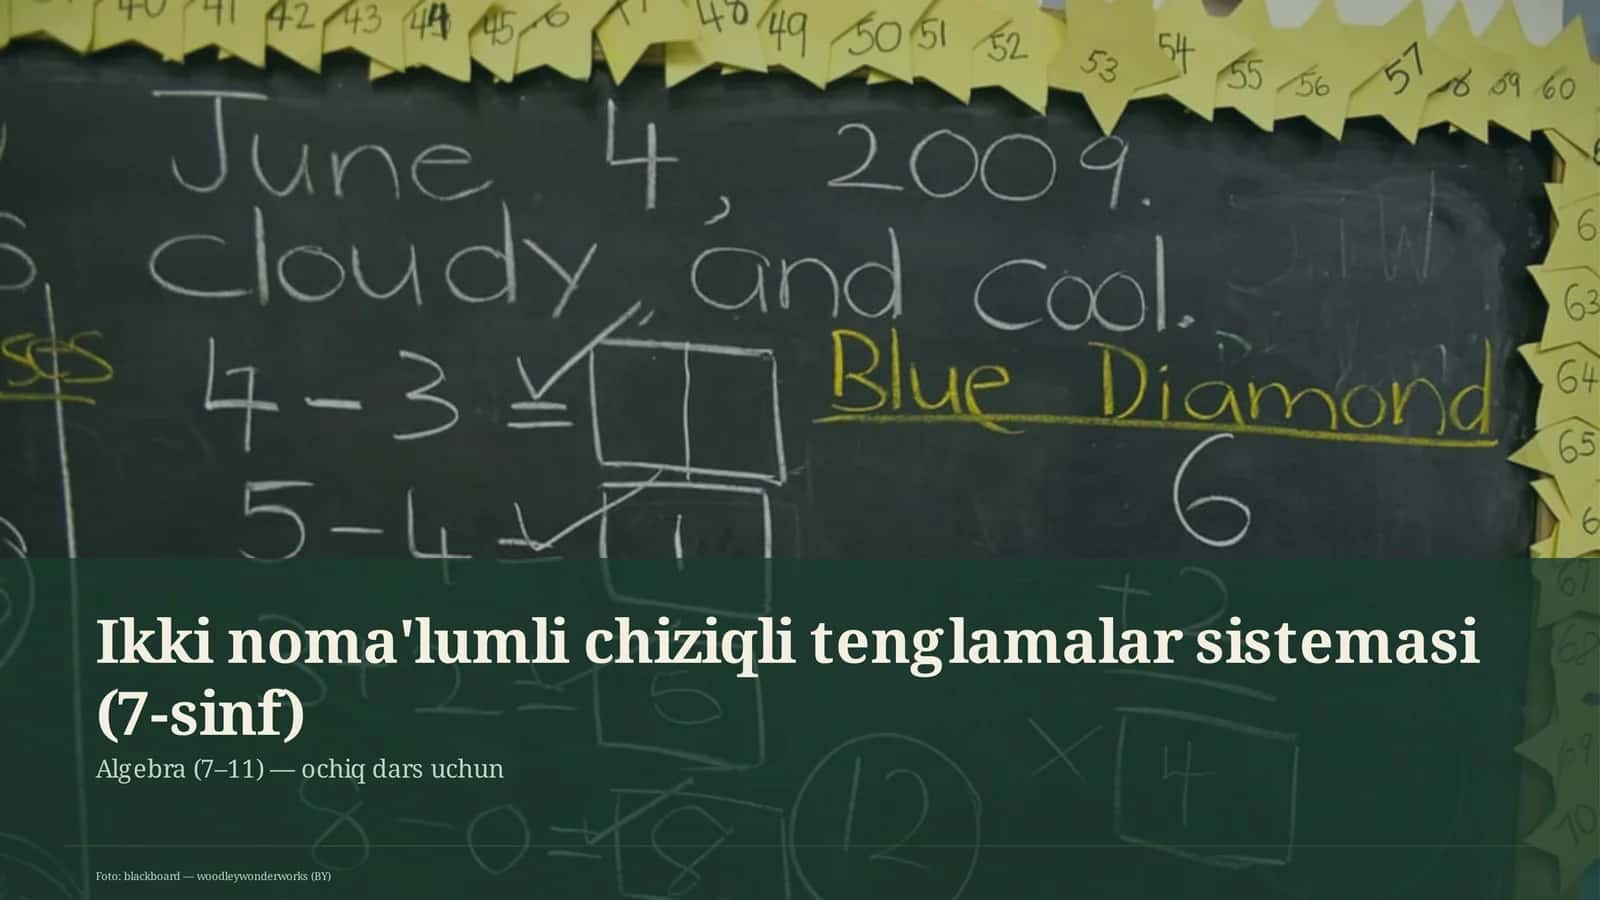 40 41 42 43 44 45 48 49 50 51 52 53 54 55 56 57 58 59 60
June 4, 2009.
cloudy, and cool.
63
4 - 3 =
Blue Diamond
64
6
65
5 - 4 = 1
67
+2
Ikki noma'lumli chiziqli tenglamalar sistemasi
(7-sinf)
5
69
Algebra (7–11) — ochiq dars uchun
12
x 4
8 - 0 = 8
70
Foto: blackboard — woodleywonderworks (BY)